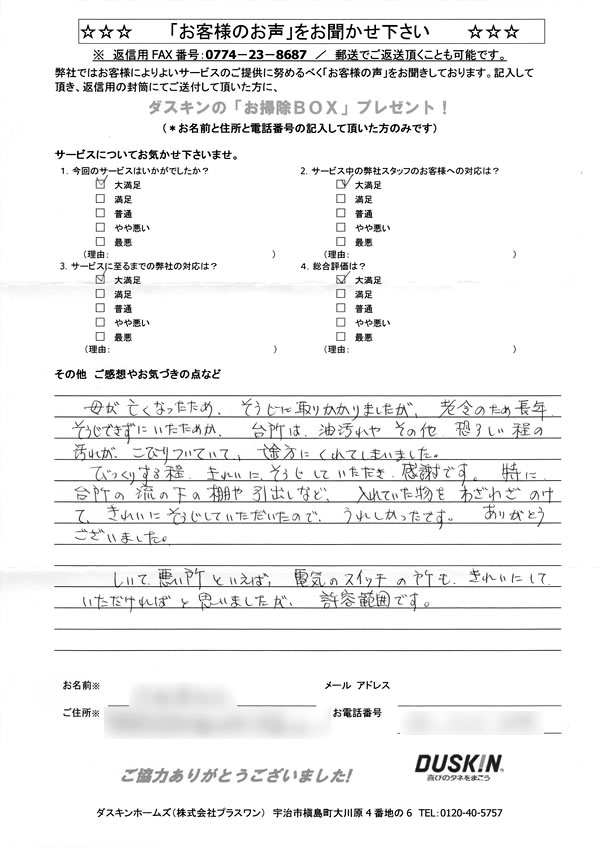 ☆☆☆ 「お客様のお声」をお聞かせ下さい ☆☆☆
※ 返信用FAX番号:0774-23-8687 / 郵送でご返送頂くことも可能です。
弊社ではお客様によりよいサービスのご提供に努めるべく「お客様の声」をお聞きしております。記入して
頂き、返信用の封筒にてご送付して頂いた方に、
ダスキンの「お掃除BOX」プレゼント!
(*お名前と住所と電話番号の記入して頂いた方のみです)
サービスについてお気かせ下さいませ。
1. 今回のサービスはいかがでしたか?
大満足
満足
普通
やや悪い
最悪
(理由: )
2. サービス中の弊社スタッフのお客様への対応は?
大満足
満足
普通
やや悪い
最悪
(理由: )
3. サービスに至るまでの弊社の対応は?
大満足
満足
普通
やや悪い
最悪
(理由: )
4. 総合評価は?
大満足
満足
普通
やや悪い
最悪
(理由: )
その他 ご感想やお気づきの点など
母が亡くなったため、そうじに取りかかりましたが、老令のため長年
そうじできずにいたためか、台所は、油汚れやその他、恐ろしい程の
汚れが、こびりついていて、途方にくれてしまいました。
びっくりする程、きれいに、そうじしていただき、感謝です。特に
台所の流の下の棚や引出しなど、入れていた物をわざわざのけ
て、きれいにそうじしていただいたので、うれしかったです。ありがとう
ございました。
しいて悪い所といえば、電気のスイッチの所も、きれいにして
いただければと思いましたが、許容範囲です。
お名前※
メール アドレス
ご住所※
お電話番号
ご協力ありがとうございました!
DUSKIN
喜びのタネをまこう
ダスキンホームズ(株式会社プラスワン) 宇治市槇島町大川原4番地の6 TEL:0120-40-5757